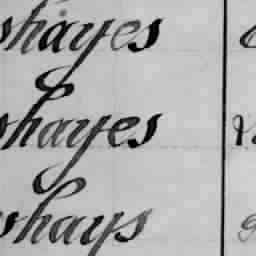 shayes
shayes
shays